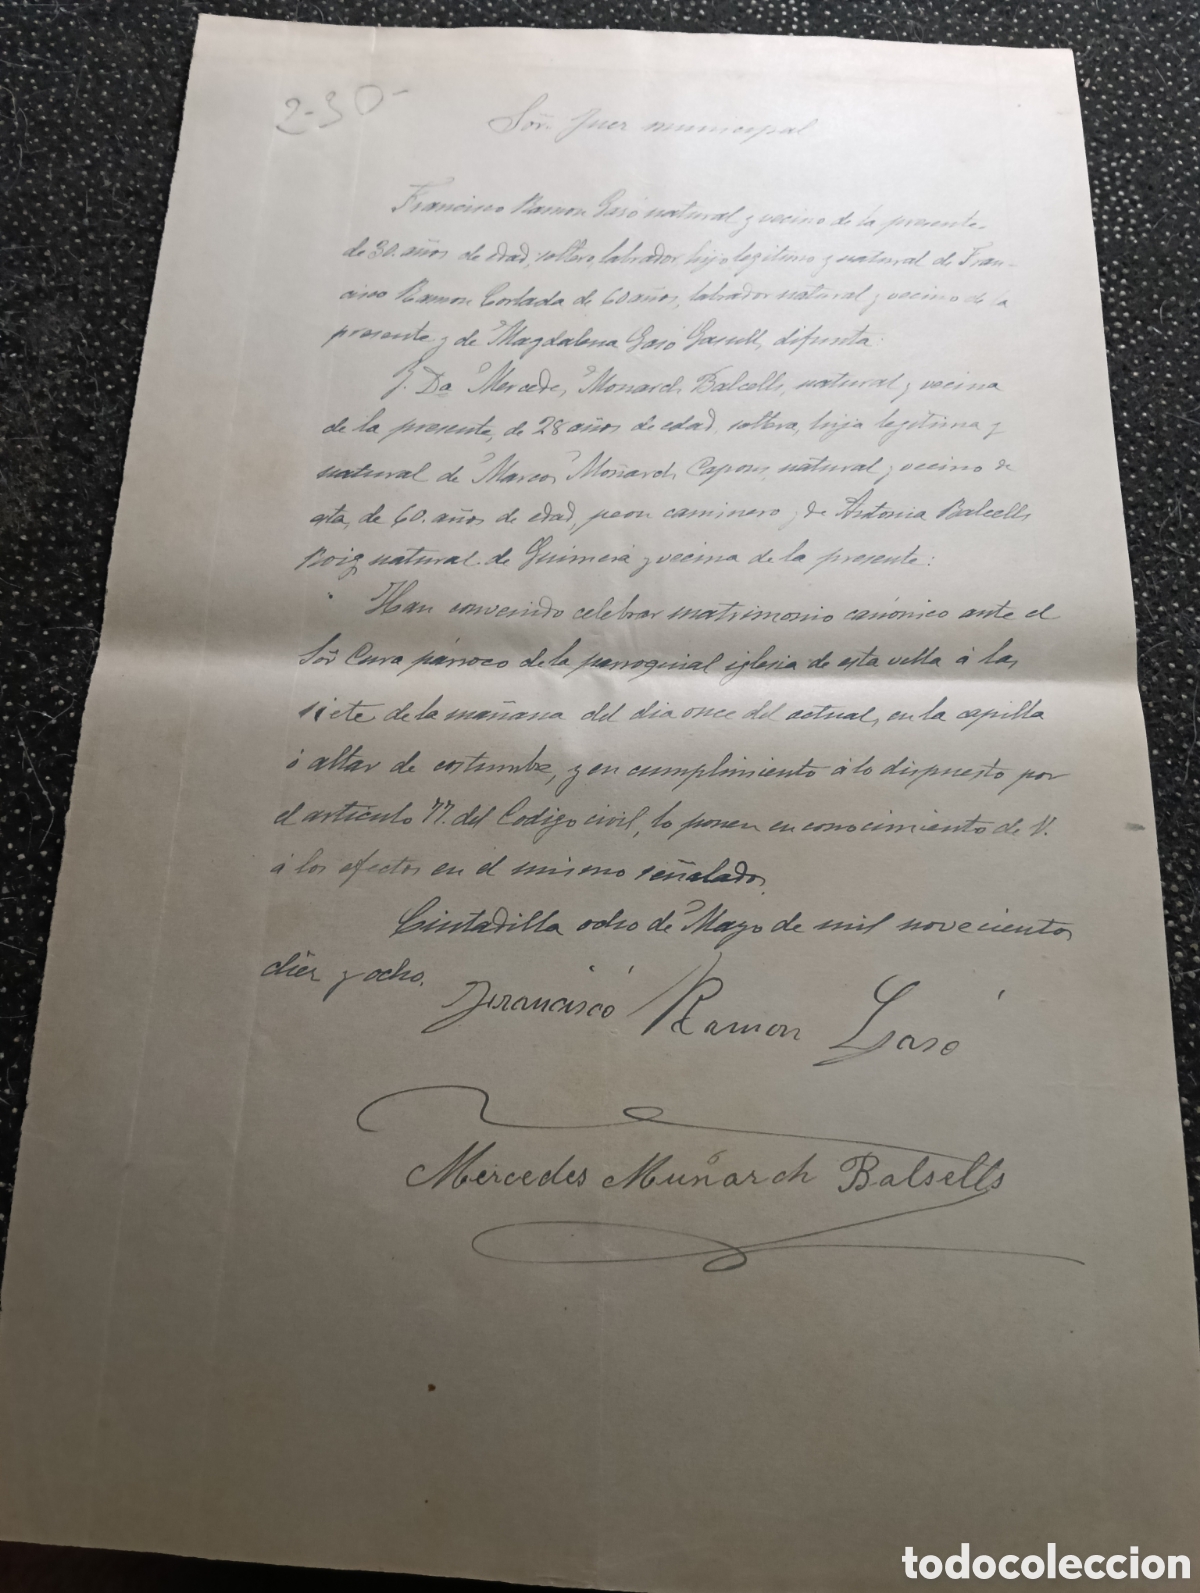 2-30-
Señ. Juez municipal
Francisco Ramon Gasó natural y vecino de la presente,
de 30 años de edad, soltero, labrador, hijo legitimo y natural de Fran-
cisco Ramon Corlada de 60 años, labrador natural y vecino de la
presente y de Magdalena Gasó Gasull, difunta:
Y. Da Mercedes Moñarch Balcells, natural y vecina
de la presente, de 28 años de edad, soltera, hija legitima y
natural de Marcos Moñarch Capons, natural y vecino de
esta, de 60. años de edad, peon caminero y de Antonia Balcells
Roig natural de Guimerá y vecina de la presente:
Han convenido celebrar matrimonio canónico ante el
Sor Cura párroco de la parroquial iglesia de esta villa á las
siete de la mañana del dia once del actual, en la capilla
ó altar de costumbre, y en cumplimiento á lo dispuesto por
el articulo 77. del Codigo civil, lo ponen en conocimiento de V.
á los efectos en el mismo señalados.
Ciutadilla ocho de Mayo de mil novecientos
diez y ocho.
Francisco Ramon Gasó
Mercedes Muñarch Balsells
todocoleccion